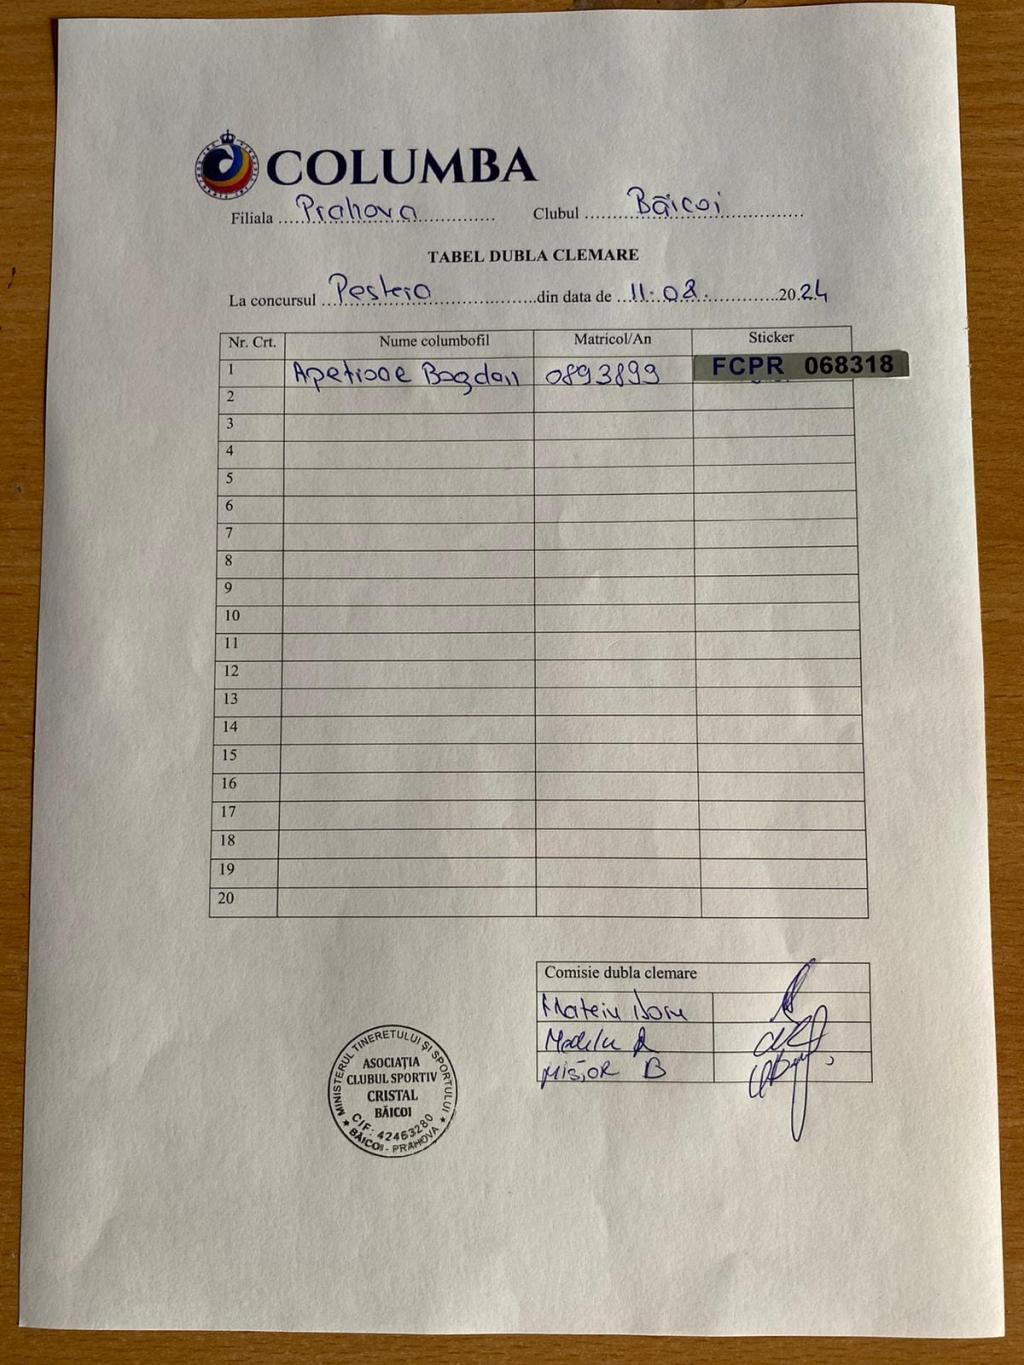 COLUMBA
Filiala ....Prahova.................. Clubul ..........Băicoi..................
TABEL DUBLA CLEMARE
La concursul ..Pestera.......................din data de ..11.08...............2024
Nr. Crt. Nume columbofil Matricol/An Sticker
1 Bogdan 0893899 FCPR 068318
2
3
4
5
6
7
8
9
10
11
12
13
14
15
16
17
18
19
20
Comisie dubla clemare
Mateiu
Mișor B
MINISTERUL TINERETULUI ȘI SPORTULUI
ASOCIAȚIA
CLUBUL SPORTIV
CRISTAL
BĂICOI
CIF: 42463280
★ BĂICOI - PRAHOVA ★